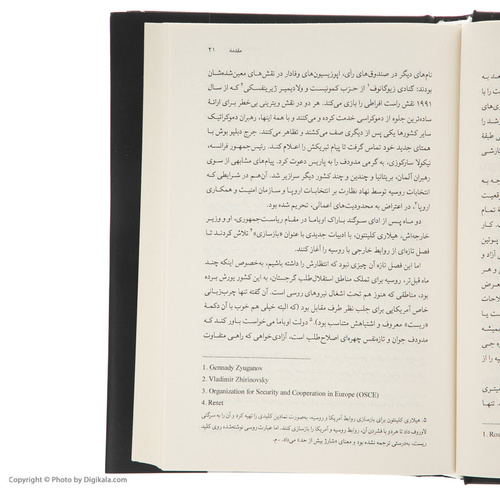 مقدمه ۲۱
نام‌های دیگر در صندوق‌های رأی، اپوزیسیون‌های وفادار در نقش‌های معین‌شده‌شان
بودند: گنادی زیوگانوف۱ از حزب کمونیست و ولادیمیر ژیرینفسکی۲ که از سال
۱۹۹۱ نقش راست افراطی را بازی می‌کند. هر دو در نقش ویترینی بی‌خطر برای ارائهٔ
ساده‌ترین جلوه از دموکراسی خدمت کرده و می‌کنند و با همهٔ اینها، رهبران دموکراتیک
سایر کشورها یکی پس از دیگری صف می‌کشند و تظاهر می‌کنند. جرج دبلیو بوش با
همتای جدید خود تماس گرفت تا پیام تبریکش را اعلام کند. رئیس‌جمهور فرانسه،
نیکولا سارکوزی، به گرمی مدودف را به پاریس دعوت کرد. پیام‌های مشابهی از سوی
رهبران آلمان، بریتانیا و چندین و چند کشور دیگر سرازیر شد. آن‌هم در شرایطی که
انتخابات روسیه توسط نهاد نظارت بر انتخابات اروپا و سازمان امنیت و همکاری
اروپا۳، در اعتراض به محدودیت‌های اعمالی، تحریم شده بود.
دو ماه پس از ادای سوگند باراک اوباما در مقام ریاست‌جمهوری، او و وزیر
خارجه‌اش، هیلاری کلینتون، با ادبیات جدیدی با عنوان «بازسازی»۴ تلاش کردند تا
فصل تازه‌ای از روابط خارجی با روسیه را آغاز کنند.
اما این فصل تازه آن چیزی نبود که انتظارش را داشته باشیم، به‌خصوص اینکه چند
ماه قبل‌تر، روسیه برای تملک مناطق استقلال‌طلب گرجستان، به این کشور یورش برده
بود، مناطقی که هنوز هم تحت اشغال نیروهای روسی است. آن گفته تنها چرب‌زبانی
خاص آمریکایی برای جلب نظر طرف مقابل بود (که البته خیلی هم خوب با آن دکمهٔ
«ریست» معروف و اشتباهش متناسب بود).۵ دولت اوباما می‌خواست باور کند که
مدودف جوان و تازه‌نفس چهره‌ای اصلاح‌طلب است، آزادی‌خواهی که راهی متفاوت
1. Gennady Zyuganov
2. Vladimir Zhirinovsky
3. Organization for Security and Cooperation in Europe (OSCE)
4. Reset
۵. هیلاری کلینتون برای بازسازی روابط آمریکا و روسیه، به‌صورت نمادین کلیدی را تهیه کرد و آن را به سرگئی
لاوروف داد تا هر دو با فشردن آن، روابط روسیه و آمریکا را بازسازی کنند. اما عبارت روسی نوشته‌شده روی کلید
ریست، به‌درستی ترجمه نشده بود و معنای «شارژ بیش از حد» می‌داد. ـ م.
1. Ros
Copyright © Photo by Digikala.com